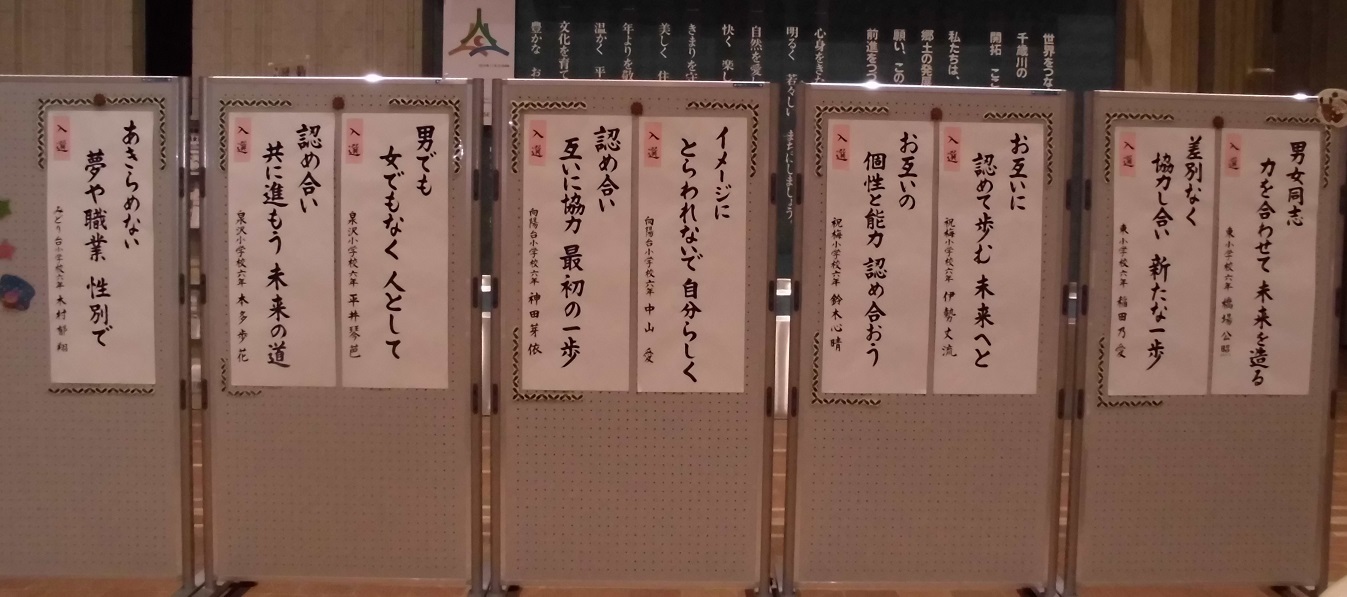 世界をつな
千歳川の
開拓 こ
私たちは、
郷土の発
願い、この
前進をつ
心身をき
明るく 若
しい まちにしましょう。
自然を愛
快く 楽し
きまりを守
美しく 住
年よりを敬
温かく 平
文化を育て
豊かな お
男女同志
力を合わせて 未来を造る
入選
東小学校六年 橋場 公
差別なく
協力し合い 新たな一歩
入選
東小学校六年 稲田 乃愛
お互いに
認めて歩む 未来へと
入選
祝梅小学校六年 伊勢 丈流
お互いの
個性と能力 認め合おう
入選
祝梅小学校六年 鈴木 心晴
イメージに
とらわれないで 自分らしく
入選
向陽台小学校六年 中山 愛
認め合い
互いに協力 最初の一歩
入選
向陽台小学校六年 神田 芽依
男でも
女でもなく 人として
入選
泉沢小学校六年 平井 琴邑
認め合い
共に進もう 未来の道
入選
泉沢小学校六年 本多 歩花
あきらめない
夢や職業 性別で
入選
みどり台小学校六年 木村